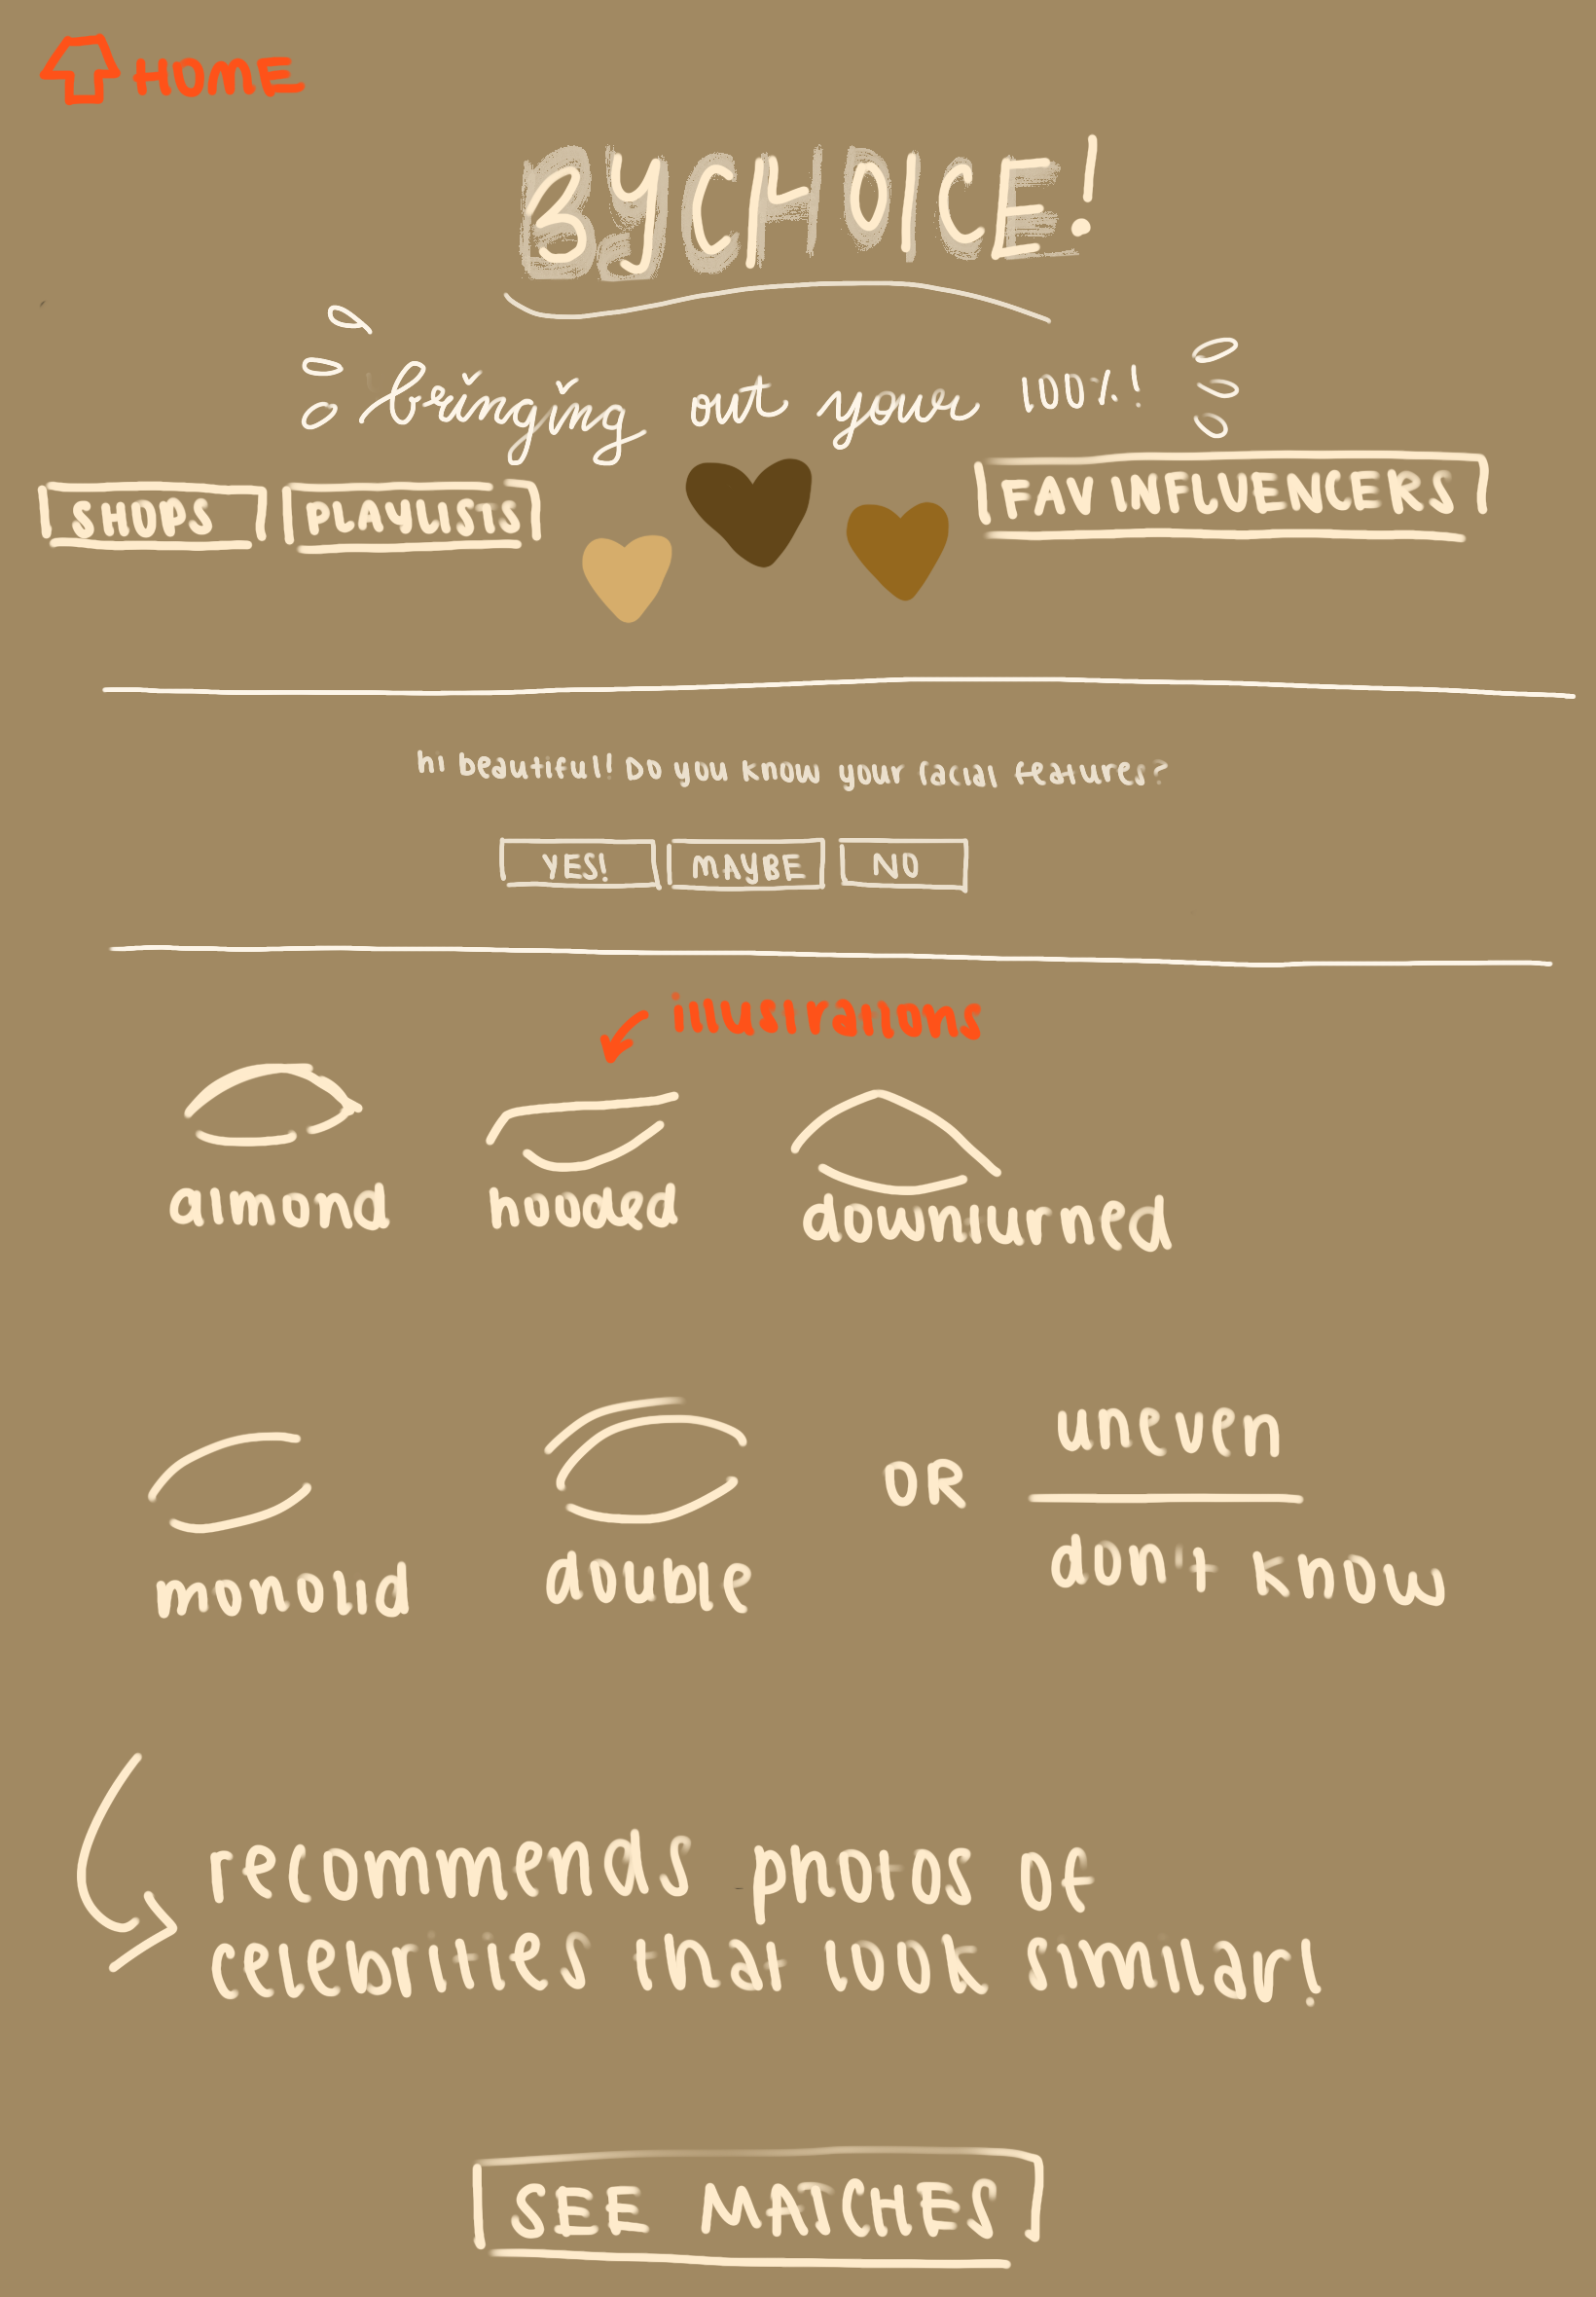 HOME
BYCHOICE!
bringing out your 100%!
SHOPS PLAYLISTS FAV INFLUENCERS
hi beautiful! Do you know your facial features?
YES! MAYBE NO
illustrations
almond hooded downturned
monolid double OR uneven
don't know
recommends photos of
celebrities that look similar!
SEE MATCHES